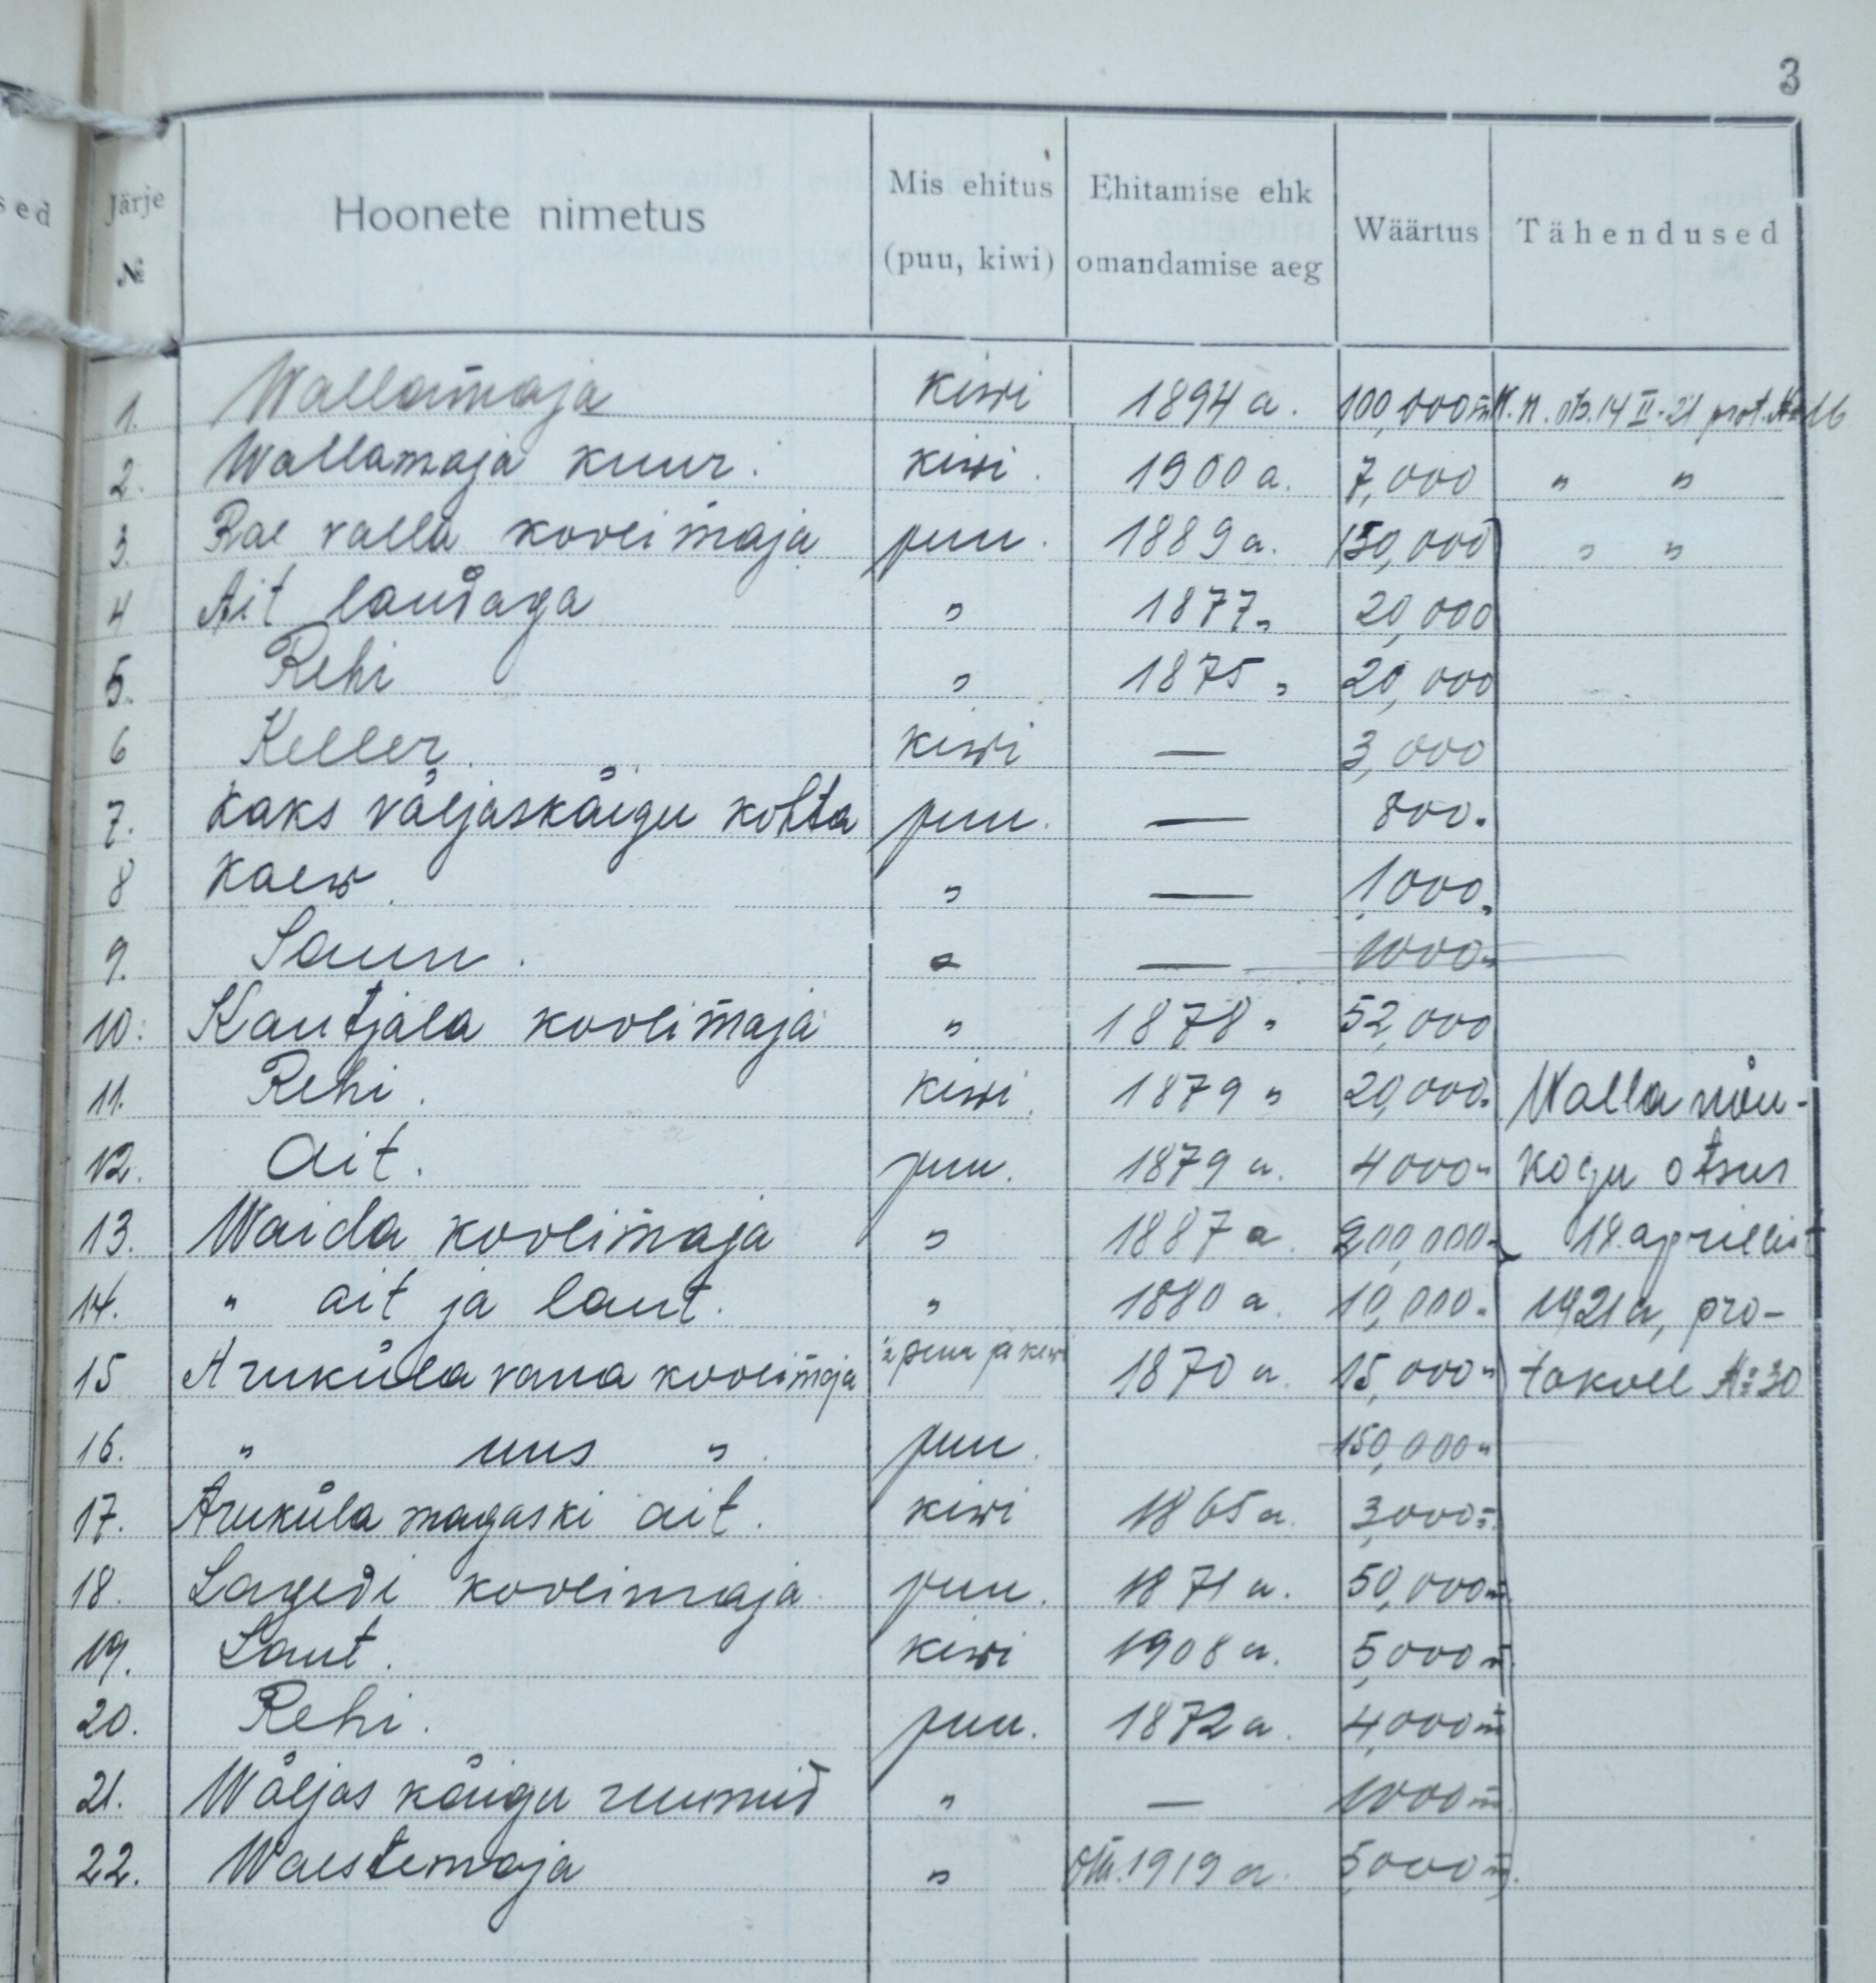 3
sed
Järje № Hoonete nimetus Mis ehitus (puu, kiwi) Ehitamise ehk omandamise aeg Wäärtus Tähendused
1. Wallamaja kiwi 1894 a. 100,000 m W. n. ots. 14 II. 21 prot. № 16
2. Wallamaja kuur. kiwi. 1900 a. 7,000 " "
3. Rae valla koolimaja puu. 1889 a. 150,000 " "
4 Ait laudaga " 1877 " 20,000
5. Rehi " 1875 " 20,000
6 Keller. kiwi — 3,000
7. Kaks väljaskäigu kohta puu. — 800.
8 Kaew. " — 1000 "
9. Saun. " — 1000 "
10. Kautjala koolimaja " 1878 " 52,000
11. Rehi. kiwi. 1879 " 20,000 " Walla nõu-
12. Ait. puu. 1879 a. 4000 " kogu otsus
13. Waida koolimaja " 1887 a. 200,000 " 18. aprillist
14. " ait ja laut. " 1880 a. 10,000 " 1921 a, pro-
15 Aruküla vana koolimaja ½ puu ja kiwi 1870 a. 15,000 " tokoll № 30
16. " uus " puu. 150,000 "
17. Aruküla magaski ait. kiwi 1865 a. 3,000 "
18. Lagedi koolimaja puu. 1871 a. 50,000 m
19. Laut. kiwi 1908 a. 5,000 m
20. Rehi. puu. 1872 a. 4,000 m
21. Wäljas käigu ruumid " — 1000 m
22. Waestemaja " om. 1919 a. 5,000 m.